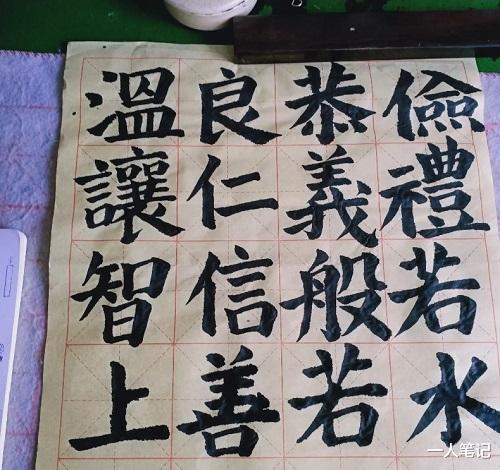 溫良恭儉
讓仁義禮
智信般若
上善若水
一人笔记